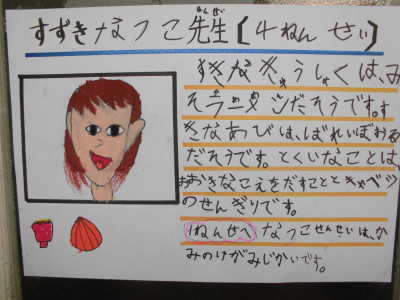 すずきなつこ先生(4ねんせい)
せんせい
すきなきゅうしょくは、み
そラーメンだそうです。す
きなあそびは、ばれいぼおる
だそうです。とくいなことは、
おおきなこえをだすこととキャベツ
のせんぎりです。
1ねんせへ なつこせんせいは、か
みのけがみじかいです。